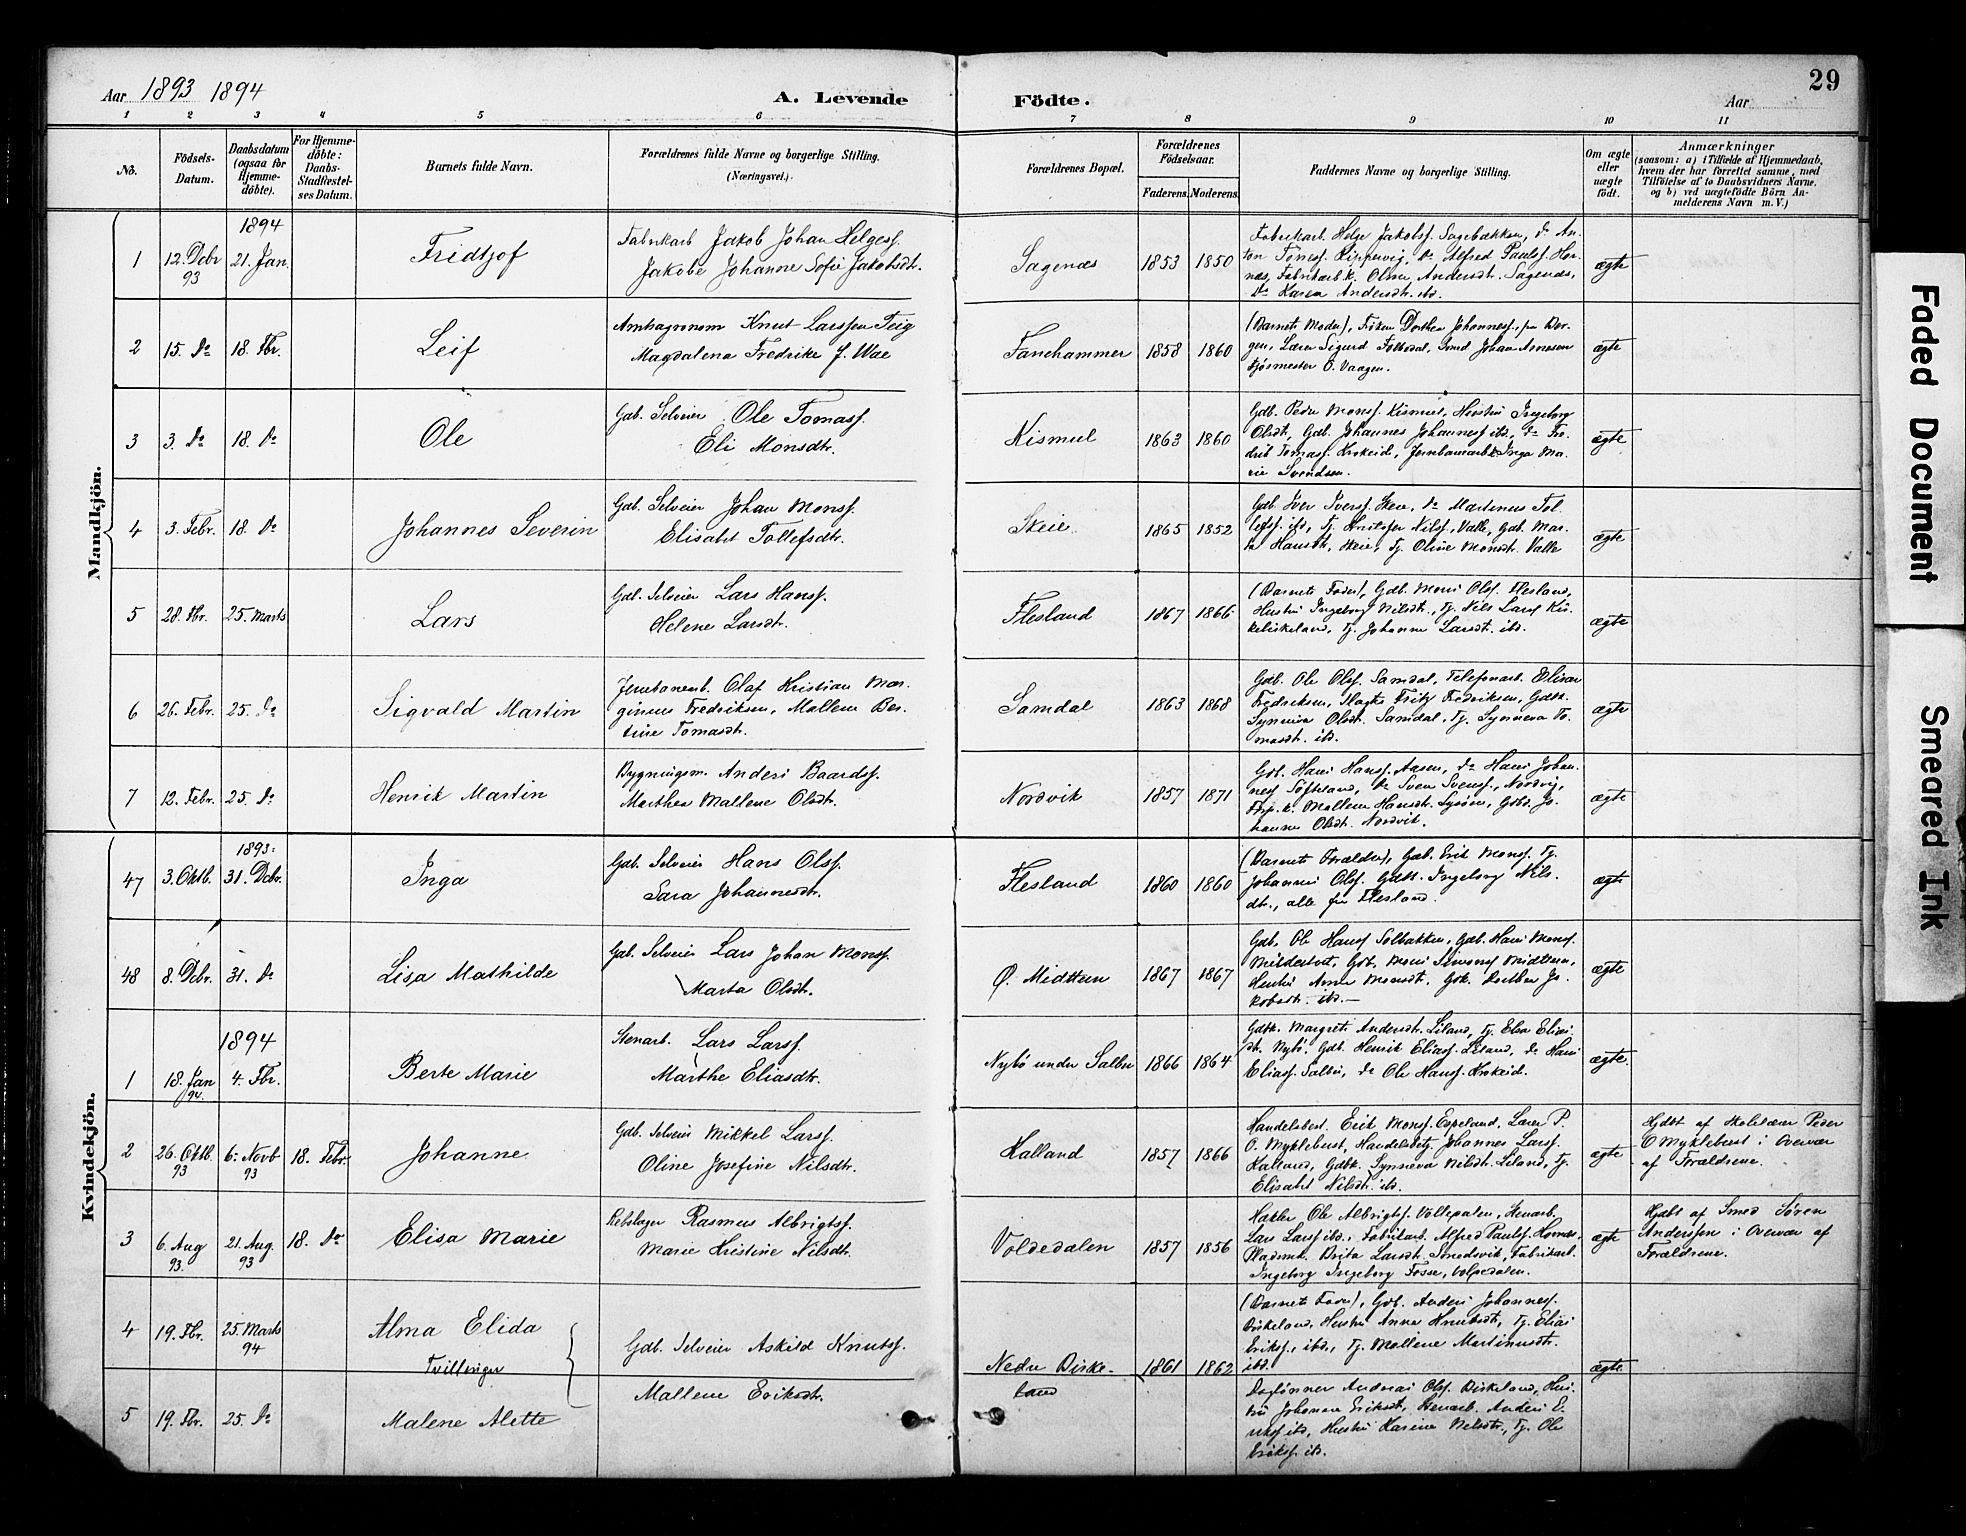 Aar 1893 1894
A. Levende
Födte.
Aar
29
1 2 3 4 5 6 7 8 9 10 11
No.
Födsels-
Datum.
Daabsdatum
(ogsaa for
Hjemme-
döbte).
For Hjemme-
döbte:
Daabs-
Stadfæstel-
ses Datum.
Barnets fulde Navn.
Forældrenes fulde Navne og borgerlige Stilling.
(Næringsvei.)
Forældrenes Bopæl.
Forældrenes
Födselsaar.
Faderens. Moderens.
Faddernes Navne og borgerlige Stilling.
Om ægte
eller
uægte
födt.
Anmærkninger
(saasom: a) i Tilfælde af Hjemmedaab,
hvem der har forrettet samme, med
Tilföielse af to Daabsvidners Navne,
og b) ved uægtefödte Börn An-
melderens Navn m. V.)
Mandkjön.
1894
1 12. Decbr 93 21. Jan. Fridtjof
Fabrikarb Jakob Johan Helgess.
Jakobe Johanne Sofie Jakobsdt.
Sagenæs 1853 1850
Fabrikarb. Helge Jakobsf. Sagebakken, do An-
ton Tönesf. Kippervig, do Alfred Paulsf. Hor-
næs, Fabrikarb.k. Oline Andersdt. Sagenæs,
Do Karen Andersdt. ibd.
ægte
2 15. Do 18. Fbr. Leif
Amtsagronom Knut Larssen Teig
Magdalena Fredrike f. Wae
Fanehammer 1858 1860
(Barnets Moder), Fröken Dorthea Johanness., fra Ber-
gen, Lærer Sigurd Folkedal, Smed Johan Arnesen
Fjösmester O. Vaagen.
ægte
3 3. Do 18. Do Ole
Gdb. Selveier Ole Tomasf.
Eli Monsdtr.
Kismul 1863 1860
Gdb. Peder Monsf. Kismul, Hustru Ingeborg
Olsdt, Gdb. Johannes Johannesf ibd., do Fre-
drik Tomasf. Krokeid, Jernbanearb.k Inga Ma-
rie Svendsen.
ægte
4 3. Febr. 18. Do Johannes Severin
Gdb. Selveier Johan Monsf.
Elisabet Tollefsdtr.
Skeie 1865 1852
Gdb. Iver Iversf. Skeie, do Martinus Tol-
lefsf. ibd, Tj. Kristofer Nilsf., Valle, Gdb. Mar-
ta Hansdt, Skeie, Tj. Oline Monsdt. Valle
ægte
5 28. Fbr. 25. Marts Lars
Gdb. Selveier Lars Hansf.
Helene Larsdt.
Flesland 1867 1866
(Barnets Fader), Gdb. Mons Olsf. Flesland,
Hustru Ingeborg Nilsdt., Tj. Nils Larsf Kir-
kebirkeland, Tj. Johanne Larsdt. ibd.
ægte
6 26. Febr. 25. Do Sigvald Martin
Jernbanearb. Olaf Kristian Mar-
ginus Fredriksen, Mallene Ber-
tine Tomasdt.
Samdal 1863 1868
Gdb. Ole Olsf. Samdal, Telefonarb. Elisar
Fredriksen, Slagter Fritz Fredriksen, Gdbk.
Synneva Olsdt. Samdal, Tj. Synneva To-
masdt. ibd.
ægte
7 12. Febr. 25. Do Henrik Martin
Bygningsm. Anders Baardsf.
Marthea Mallene Olsdt.
Nordvik 1857 1871
Gdb. Hans Hansf. Aasen, do Hans Johan-
nesf Söfteland, Do Sven Svensf., Nordvig,
Mallene Hansdt. Lysöen, Gdbd. Jo-
hanne Olsdt. Nordvik.
ægte
Kvindekjön.
1893:
47 3. Oktb. 31. Dcbr. Inga
Gdb. Selveier Hans Olsf.
Sara Johannesdt.
Flesland 1860 1860
(Barnets Forældre), Gdb. Erik Monsf. Tj.
Johannes Olsf. Gdbk. Ingeborg Nils-
dt., alle fra Flesland.
ægte
48 8. Decbr. 31. Do Lisa Mathilde
Gdb. Selveier Lars Johan Monsf.
Marta Olsdt.
Ø. Midttun 1867 1867
Gdb. Ole Hansf Solbakken, Gdb. Hans Monsf.
Mildestvet, Gdb. Mons Simonsf Midttun,
Hustru Anna Monsdt. Gdk. Dorthea Ja-
kobsdt. ibd.
ægte
1894
1 18. Jan 94. 4. Fbr. Berte Marie
Stenarb. Lars Larsf.
Marthe Eliasdtr.
Nybö under Salbu 1866 1864
Gdbk. Margrete Andersdt. Liland, Tj. Elsa Elias-
dt. Nybö, Gdb. Henrik Eliasf. Liland, do Hans
Eliasf. Salbu, do Ole Hansf. Krokeid.
ægte.
2 26. Oktb. 93 6. Novb 93 18. Febr. Johanne
Gdb. Selveier Mikkel Larsf.
Oline Josefine Nilsdtr.
Halland 1857 1866
Handelsbest. Erik Monsf. Espeland, Lærer P.
O. Myklebust, Handelsbetj. Johannes Larsf.
Halland, Gdbk. Synneva Nilsdt. Liland, Tj.
Elisabet Nilsdt. ibd.
ægte
Hjdbt af Skolelærer Peder
O Myklebust i Overvær
af Forældrene.
3 6. Aug 93. 21. Aug. 93 18. Do Elisa Marie
Rebslager Rasmus Albrigtsf.
Marie Kristine Nilsdt.
Voldedalen 1857 1856
Hekler Ole Albrigtsf. Vollepalen, Stenarb.
Lars Larsf ibd., Fabrikarb. Alfred Paulsf. Hornæs,
Pladsmk. Brita Larsdt. Smedsvik, Fabrikarb.
Ingeborg Ingeborg Fosse, Volpedalen.
ægte
Hjdbt af Smed Sören
Anderssen i Overvær af
Forældrene.
4 19. Fbr. 25. Marts 94 Alma Elida
Tvillinger
Gdb. Selveier Askild Knutsf.
Mallene Eriksdt.
Nedre Birke-
land
1861 1862
(Barnets Fader), Gdb. Anders Johannesf.
Birkeland, Hustru Anna Knutsdt, Tj. Elias
Eriksf., ibd., Tj. Mallene Martinusdt.
ibd.
ægte
5 19. Fbr. 25. Do Malene Alette
Daglönner Andreas Olsf. Birkeland, Hus-
tru Johanne Eriksdt, Stenarb. Anders E-
riksf ibd, Hustru Karine Nilsdtr., Tj. Ole
Eriksf. ibd.
Faded Document
Smeared Ink